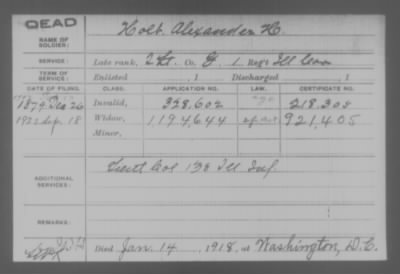 DEAD
NAME OF SOLDIER: Holt, Alexander H.
SERVICE: Late rank, 2 Lt Co. G, 1 Reg't Ill Cav
TERM OF SERVICE: Enlisted , 1 Discharged , 1
DATE OF FILING. CLASS. APPLICATION NO. LAW. CERTIFICATE NO.
1879 Dec 26 Invalid, 328.602 218.308
1922 Sep. 18 Widow, 1194644 921,405
Minor,
ADDITIONAL SERVICES: Lieut Col 138 Ill Inf.
REMARKS:
Died Jan. 14, 1918, at Washington, D.C.